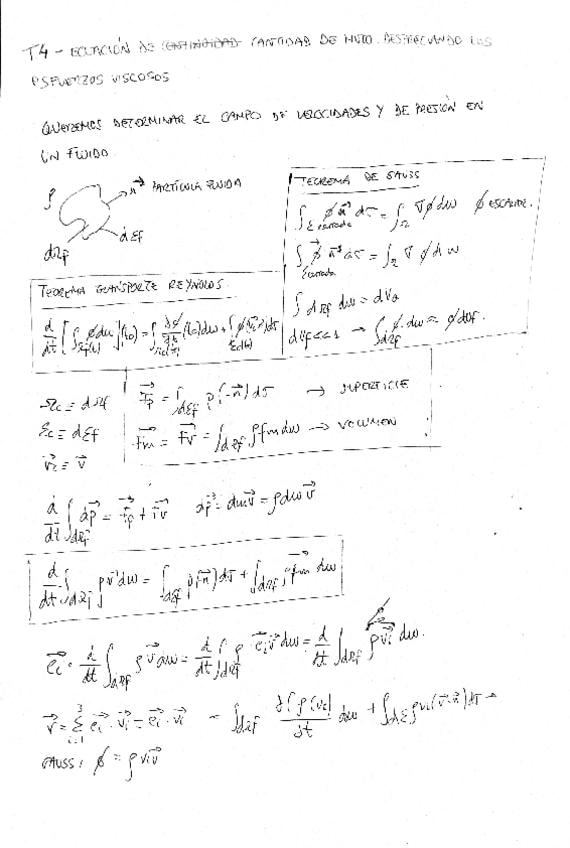 T4 - ECUACIÓN DE CONTINUIDAD CANTIDAD DE MVTO. DESPRECIANDO LOS
ESFUERZOS VISCOSOS
QUEREMOS DETERMINAR EL CAMPO DE VELOCIDADES Y DE PRESIÓN EN
UN FLUIDO
ρ n⃗ PARTÍCULA FLUIDA
dΣf
dΩf
TEOREMA DE GAUSS
∫Σcerrada ϕ n⃗ dσ = ∫Ω ∇ϕ dω ϕ ESCALAR.
∫Σcerrada ϕ⃗ n⃗ dσ = ∫Ω ∇ϕ dω
∫dΩf dω = dVΩ
dΩf<<1 → ∫dΩf ϕ dω ≈ ϕ dΩf.
TEOREMA TRANSPORTE REYNOLDS
d/dt [∫Ωf(t) ϕ dω](t0) = ∫Ωc(t0) ∂ϕ/∂t (t0) dω + ∫Σc(t0) ϕ(v⃗ n⃗) dσ
Ωc ≡ dΩf
Σc ≡ dΣf
v⃗c ≡ v⃗
F⃗p = ∫dΣf p(-n⃗) dσ → SUPERFICIE
F⃗m = F⃗v = ∫dΩf ρ f⃗m dω → VOLUMEN
d/dt ∫dΩf dp⃗ = F⃗p + F⃗v dp⃗ = dm v⃗ = ρ dω v⃗
d/dt ∫dΩf ρ v⃗ dω = ∫dΣf p(-n⃗) dσ + ∫dΩf ρ f⃗m dω
e⃗i · d/dt ∫dΩf ρ v⃗ dω = d/dt ∫dΩf ρ e⃗i v⃗ dω = d/dt ∫dΩf ρ vi dω.
v⃗ = Σ(i=1, 3) e⃗i · v⃗i = e⃗i · v⃗i = ∫dΩf ∂(ρ(vi)/∂t dω + ∫dΣ ρ vi (v⃗·n⃗) dσ →
GAUSS: ϕ = ρ vi v⃗